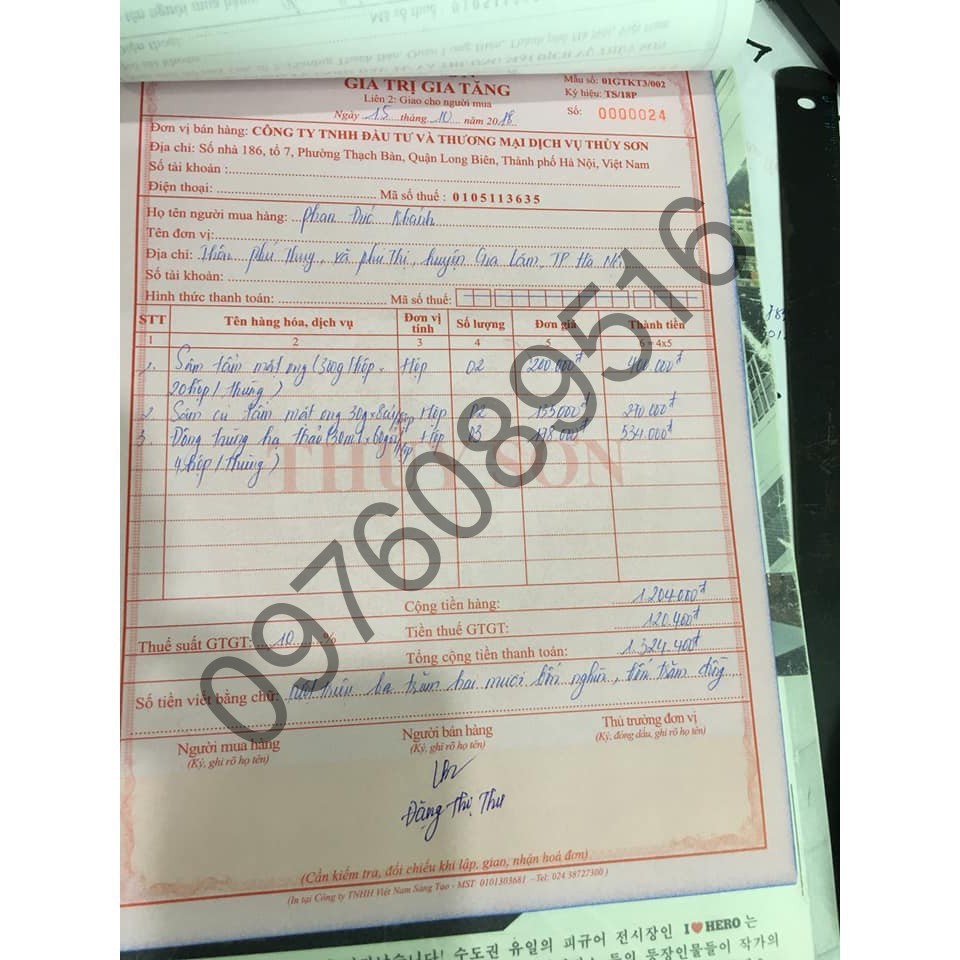 tên người mua hàng:
Mã số thuế : 010511363
GIÁ TRỊ GIA TĂNG
Liên 2: Giao cho người mua
Ngày 15 tháng 10 năm 2018
Mẫu số: 01GTKT3/002
Ký hiệu: TS/18P
Số: 0000024
Đơn vị bán hàng: CÔNG TY TNHH ĐẦU TƯ VÀ THƯƠNG MẠI DỊCH VỤ THỦY SƠN
Địa chỉ: Số nhà 186, tổ 7, Phường Thạch Bàn, Quận Long Biên, Thành phố Hà Nội, Việt Nam
Số tài khoản :
Điện thoại: Mã số thuế : 0105113635
Họ tên người mua hàng: Phan Đức Khánh
Tên đơn vị:
Địa chỉ: Thôn Phú Thụy, xã Phú Thị, huyện Gia Lâm, TP Hà Nội
Số tài khoản:
Hình thức thanh toán: Mã số thuế:
STT Tên hàng hóa, dịch vụ Đơn vị tính Số lượng Đơn giá Thành tiền
1 2 3 4 5 6 = 4x5
1. Sâm tẩm mật ong (300g/hộp x Hộp 02 200.000đ 400.000đ
20hộp/thùng)
2. Sâm củ tẩm mật ong 30g x 8 Hộp 02 135.000đ 270.000đ
3. Đông trùng hạ thảo 30ml x 60gói/hộp Hộp 03 178.000đ 534.000đ
4hộp/thùng)
THỦY SƠN
Cộng tiền hàng: 1.204.000đ
Thuế suất GTGT: 10 % Tiền thuế GTGT: 120.400đ
Tổng cộng tiền thanh toán: 1.324.400đ
Số tiền viết bằng chữ: Một triệu ba trăm hai mươi bốn nghìn, bốn trăm đồng
Người mua hàng Người bán hàng Thủ trưởng đơn vị
(Ký, ghi rõ họ tên) (Ký, ghi rõ họ tên) (Ký, đóng dấu, ghi rõ họ tên)
Đặng Thị Thu
(Cần kiểm tra, đối chiếu khi lập, giao, nhận hoá đơn)
(In tại Công ty TNHH Việt Nam Sáng Tạo - MST: 0101303681 - Tel: 024.38727300 )
0976089516
수도권 유일의 피규어 전시장인 I ♥ HERO 는
등장인물들이 작가의